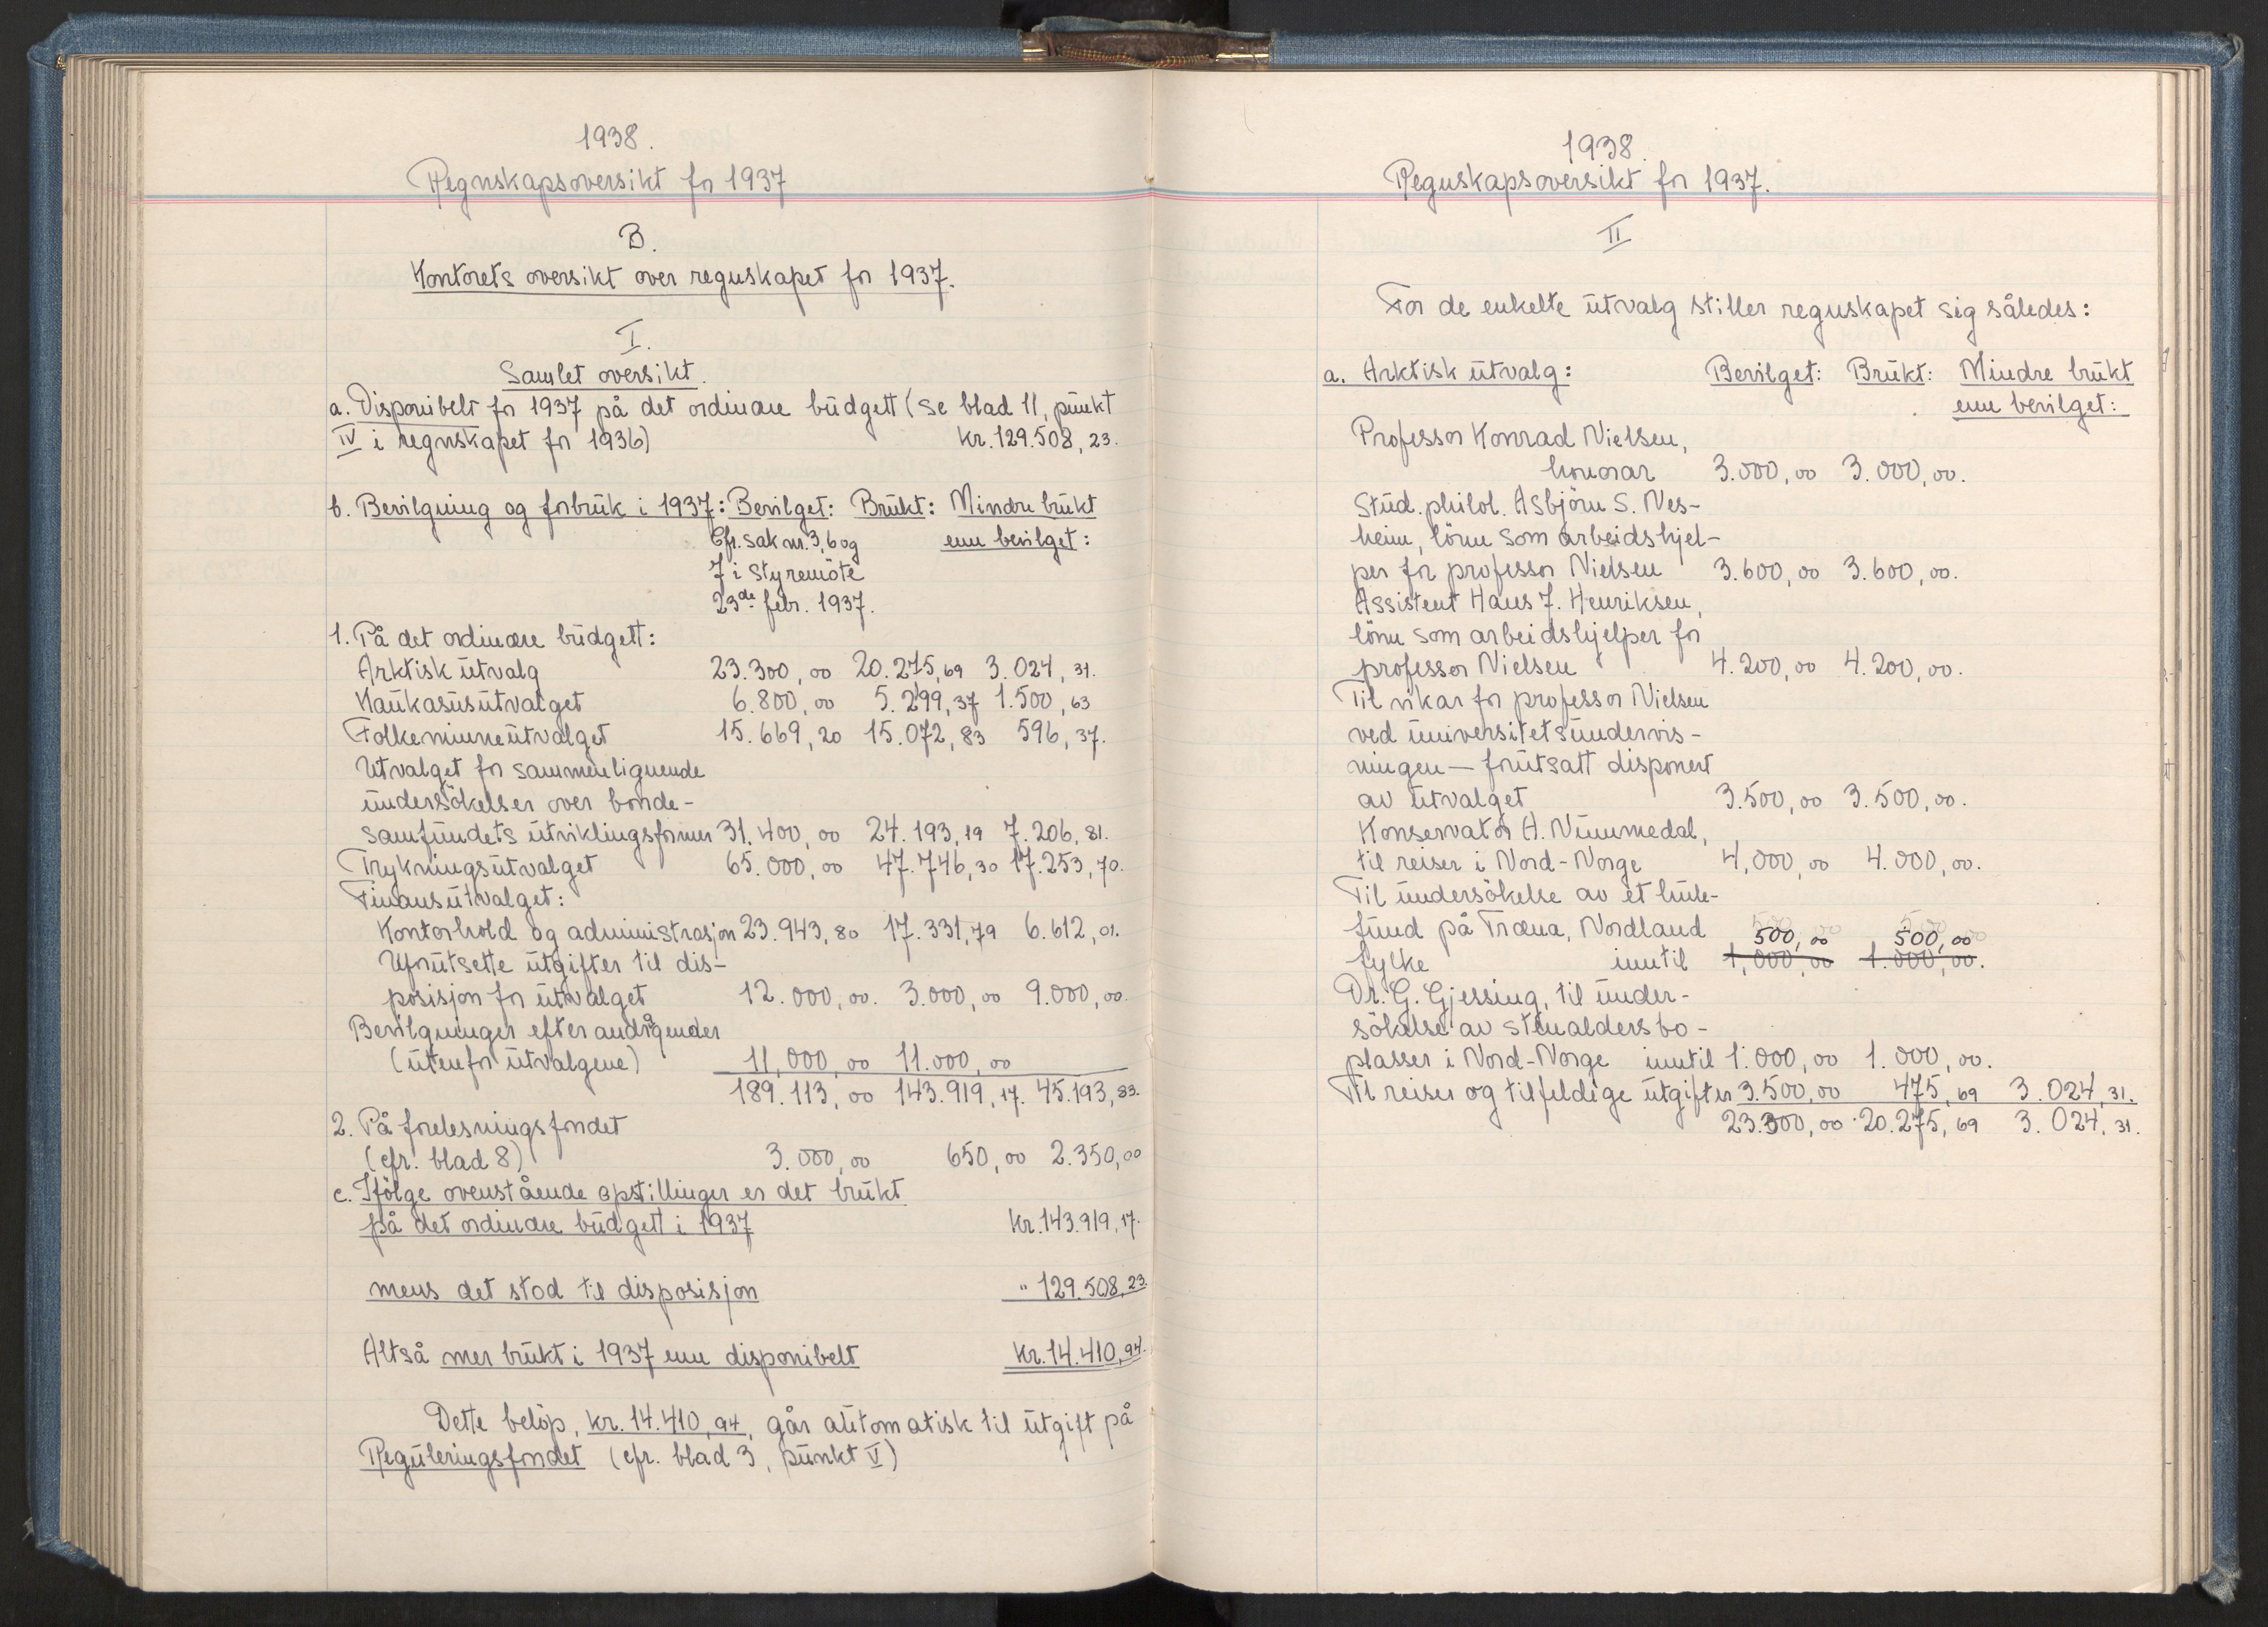 1938.
Regnskapsoversikt for 1937
B.
Kontorets oversikt over regnskapet for 1937.
I.
Samlet oversikt.
a. Disponibelt for 1937 på det ordinære budgett (se blad 11, punkt
IV i regnskapet for 1936) Kr. 129.508, 23.
b. Bevilgning og forbruk i 1937: Bevilget: Brukt: Mindre brukt
Cfr. sak nr. 3, 6 og enn bevilget:
7 i styremöte
23de febr. 1937.
1. På det ordinære budgett:
Arktisk utvalg 23.300, 00 20.275, 69 3.024, 31.
Kaukasusutvalget 6.800, 00 5.299, 37 1.500, 63
Folkeminneutvalget 15.669, 20 15.072, 83 596, 37.
Utvalget for sammenlignende
undersökelser over bonde-
samfundets utviklingsformer 31.400, 00 24.193, 19 7.206, 81.
Trykningsutvalget 65.000, 00 47.746, 30 17.253, 70.
Finansutvalget:
Kontorhold og administrasjon 23.943, 80 17.331, 79 6.612, 01.
Uforutsette utgifter til dis-
posisjon for utvalget 12.000, 00. 3.000, 00 9.000, 00.
Bevilgninger efter andragender
(utenfor utvalgene) 11,000, 00 11.000, 00
189.113, 00 143.919, 17. 45.193, 83.
2. På forelesningsfondet
(cfr. blad 8) 3.000, 00 650, 00 2.350, 00
c. Ifölge ovenstående opstillinger er det brukt
på det ordinære budgett i 1937 Kr. 143.919, 17.
mens det stod til disposisjon " 129.508, 23.
Altså mer brukt i 1937 enn disponibelt Kr. 14.410, 94.
Dette belöp, kr. 14.410, 94, går automatisk til utgift på
Reguleringsfondet (cfr. blad 3, punkt V)
1938.
Regnskapsoversikt for 1937.
II
For de enkelte utvalg stiller regnskapet sig således:
a. Arktisk utvalg: Bevilget: Brukt: Mindre brukt
enn bevilget:
Professor Konrad Nielsen,
honorar 3.000, 00 3.000, 00.
Stud. philol. Asbjörn S. Nes-
heim, lönn som arbeidshjel-
per for professor Nielsen 3.600, 00 3.600, 00.
Assistent Hans J. Henriksen,
lönn som arbeidshjelper for
professor Nielsen 4.200, 00 4.200, 00.
Til vikar for professor Nielsen
ved universitetsundervis-
ningen — forutsatt disponert
av utvalget 3.500, 00 3.500, 00.
Konservator A. Nummedal,
til reiser i Nord-Norge 4,000, 00 4.000, 00.
Til undersökelse av et hule-
fund på Træna, Nordland 500, 00 500, 00
fylke inntil 1,000, 00 1.000, 00.
Dr. G. Gjessing, til under-
sökelse av stenaldersbo-
plasser i Nord-Norge inntil 1.000, 00 1.000, 00.
Til reiser og tilfeldige utgifter 3.500, 00 475, 69 3.024, 31.
23.300, 00 20.275, 69 3.024, 31.